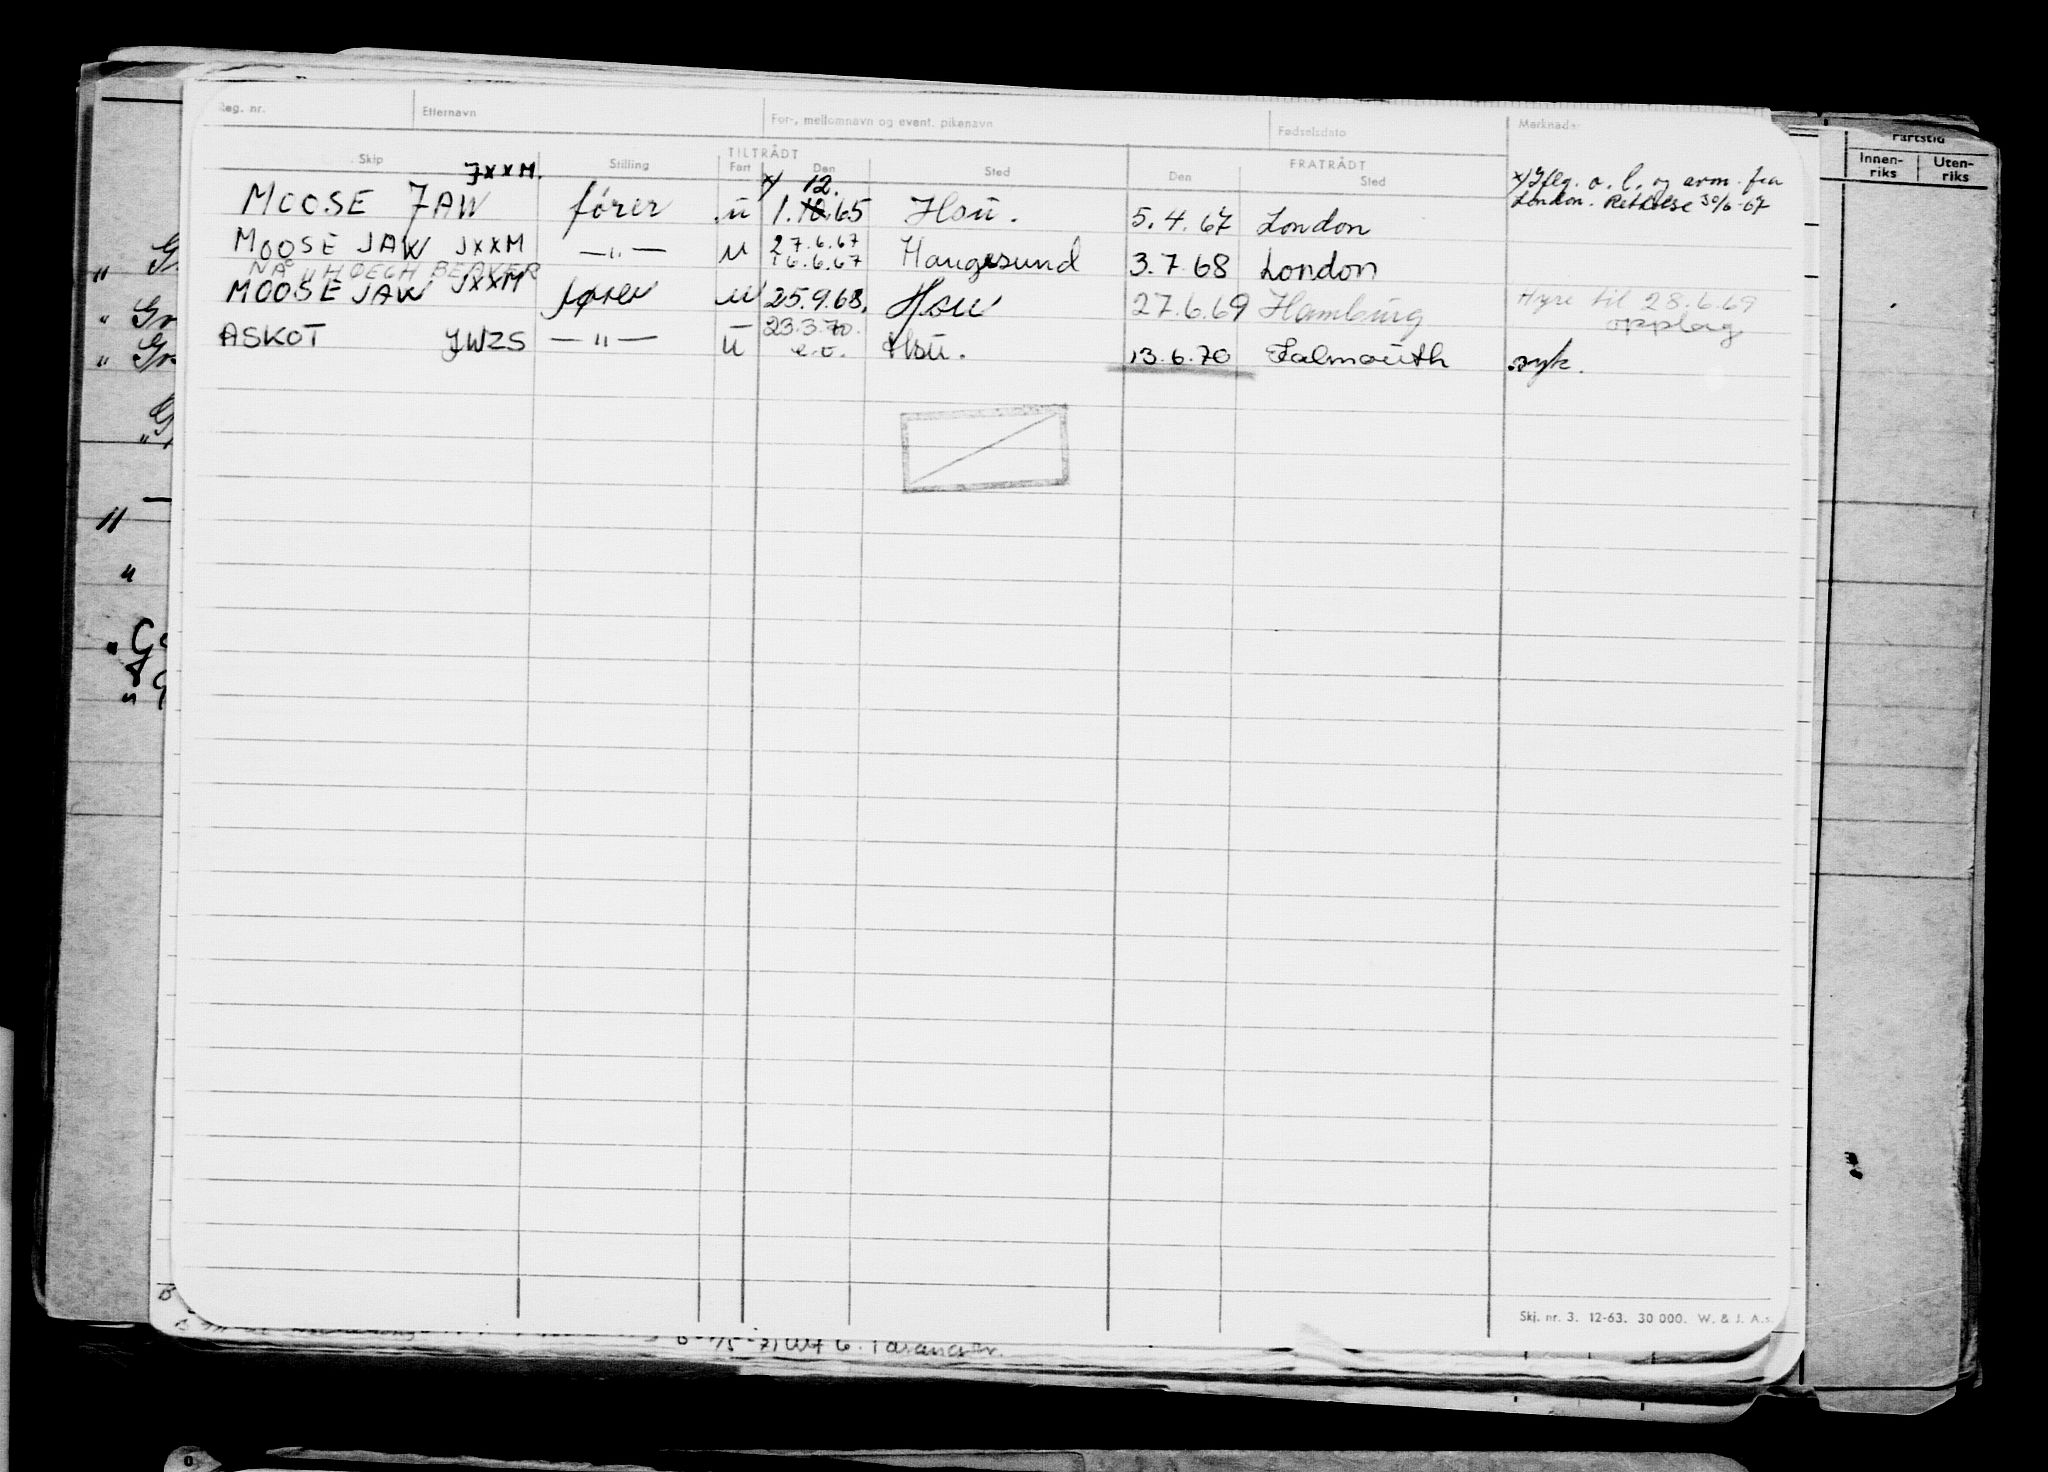 Reg. nr. Etternavn For-, mellomnavn og event. pikenavn Fødselsdato Merknader
Skip Stilling TILTRÅDT Fart Den Sted FRATRÅDT Den Sted
JXXM.
x/ 12.
MOOSE JAW fører u 1.10.65 Hsu. 5.4.67 London
x/ Iflg. o. l. og avm. fra
London. Rettelse 30/6-67
MOOSE JAW JXXM —"— u 27.6.67 Haugesund 3.7.68 London
16.6.67
NÅ "HOEGH BEAVER
MOOSE JAW JXXM fører u 25.9.68. Hsu 27.6.69 Hamburg Hyre til 28.6.69
opplag
ASKOT JWZS —"— u 23.3.70. Hsu. 13.6.70 Falmouth syk.
e.o.
Fartstid
Innen-
riks
Uten-
riks
Skj. nr. 3. 12-63. 30 000. W. & J. A.s.